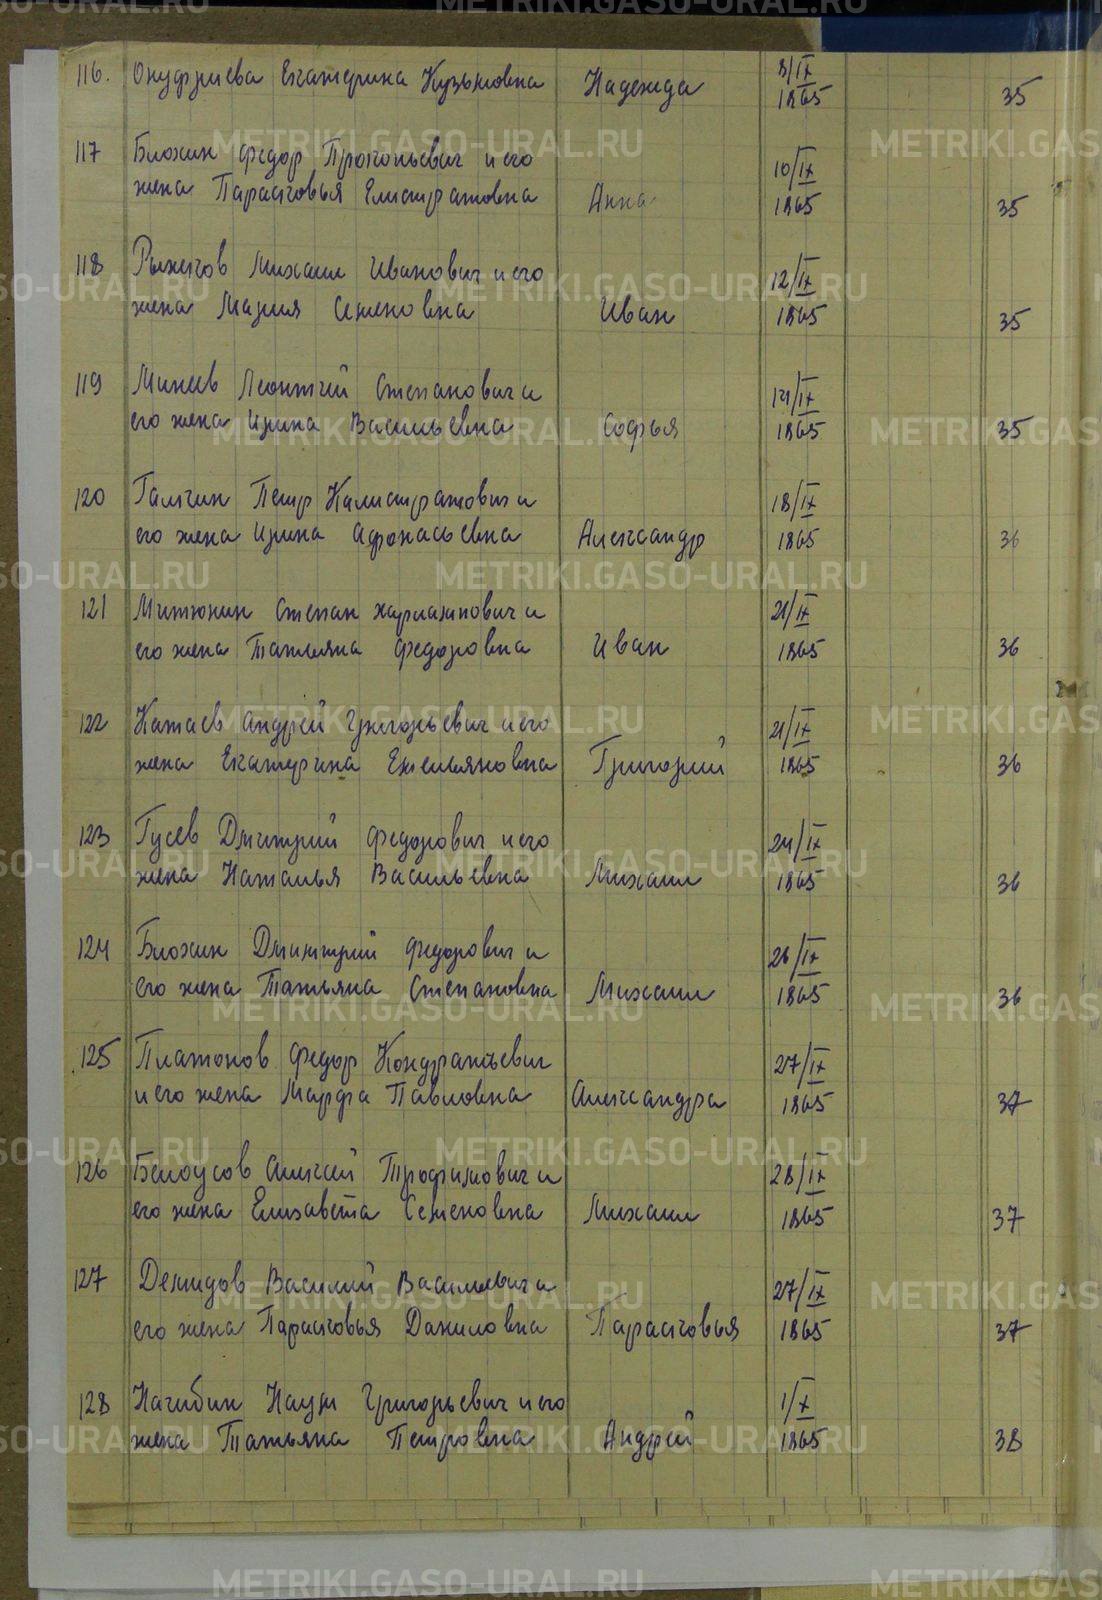 116. Онуфриева Екатерина Кузьмовна Надежда 8/IX
1865 35
117 Блохин Федор Прокопьевич и его 10/IX
жена Парасковья Елистратовна Анна 1865 35
118 Рыжков Михаил Иванович и его 12/IX
жена Мария Семеновна Иван 1865 35
119 Минеев Леонтий Степанович и 14/IX
его жена Ирина Васильевна Софья 1865 35
120 Галкин Петр Калистратович и 18/IX
его жена Ирина Афонасьевна Александр 1865 36
121 Митюнин Степан Харлампович и 21/IX
его жена Татьяна Федоровна Иван 1865 36
122 Катаев Андрей Григорьевич и его 21/IX
жена Екатерина Емельяновна Григорий 1865 36
123 Гусев Дмитрий Федорович и его 24/IX
жена Наталья Васильевна Михаил 1865 36
124 Блохин Дмитрий Федорович и 26/IX
его жена Татьяна Степановна Михаил 1865 36
125 Платонов Федор Кондратьевич 27/IX
и его жена Марфа Павловна Александра 1865 37
126 Белоусов Алексей Трофимович и 28/IX
его жена Елизавета Семеновна Михаил 1865 37
127 Демидов Василий Васильевич и 27/IX
его жена Парасковья Даниловна Парасковья 1865 37
128 Нагибин Наум Григорьевич и его 1/X
жена Татьяна Петровна Андрей 1865 38
METRIKI.GASO-URAL.RU